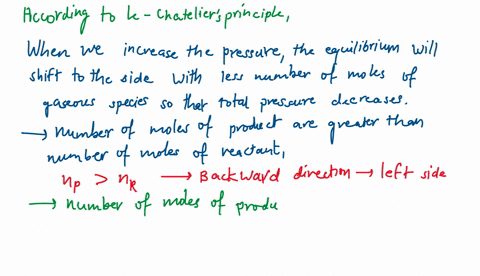 According to le-Chatelier's principle,
When we increase the pressure, the equilibrium will
shift to the side with less number of moles of
gaseous species so that total pressure decreases.
→ Number of moles of product are greater than
number of moles of reactant,
np > nR → Backward direction → left side
→ number of moles of produ